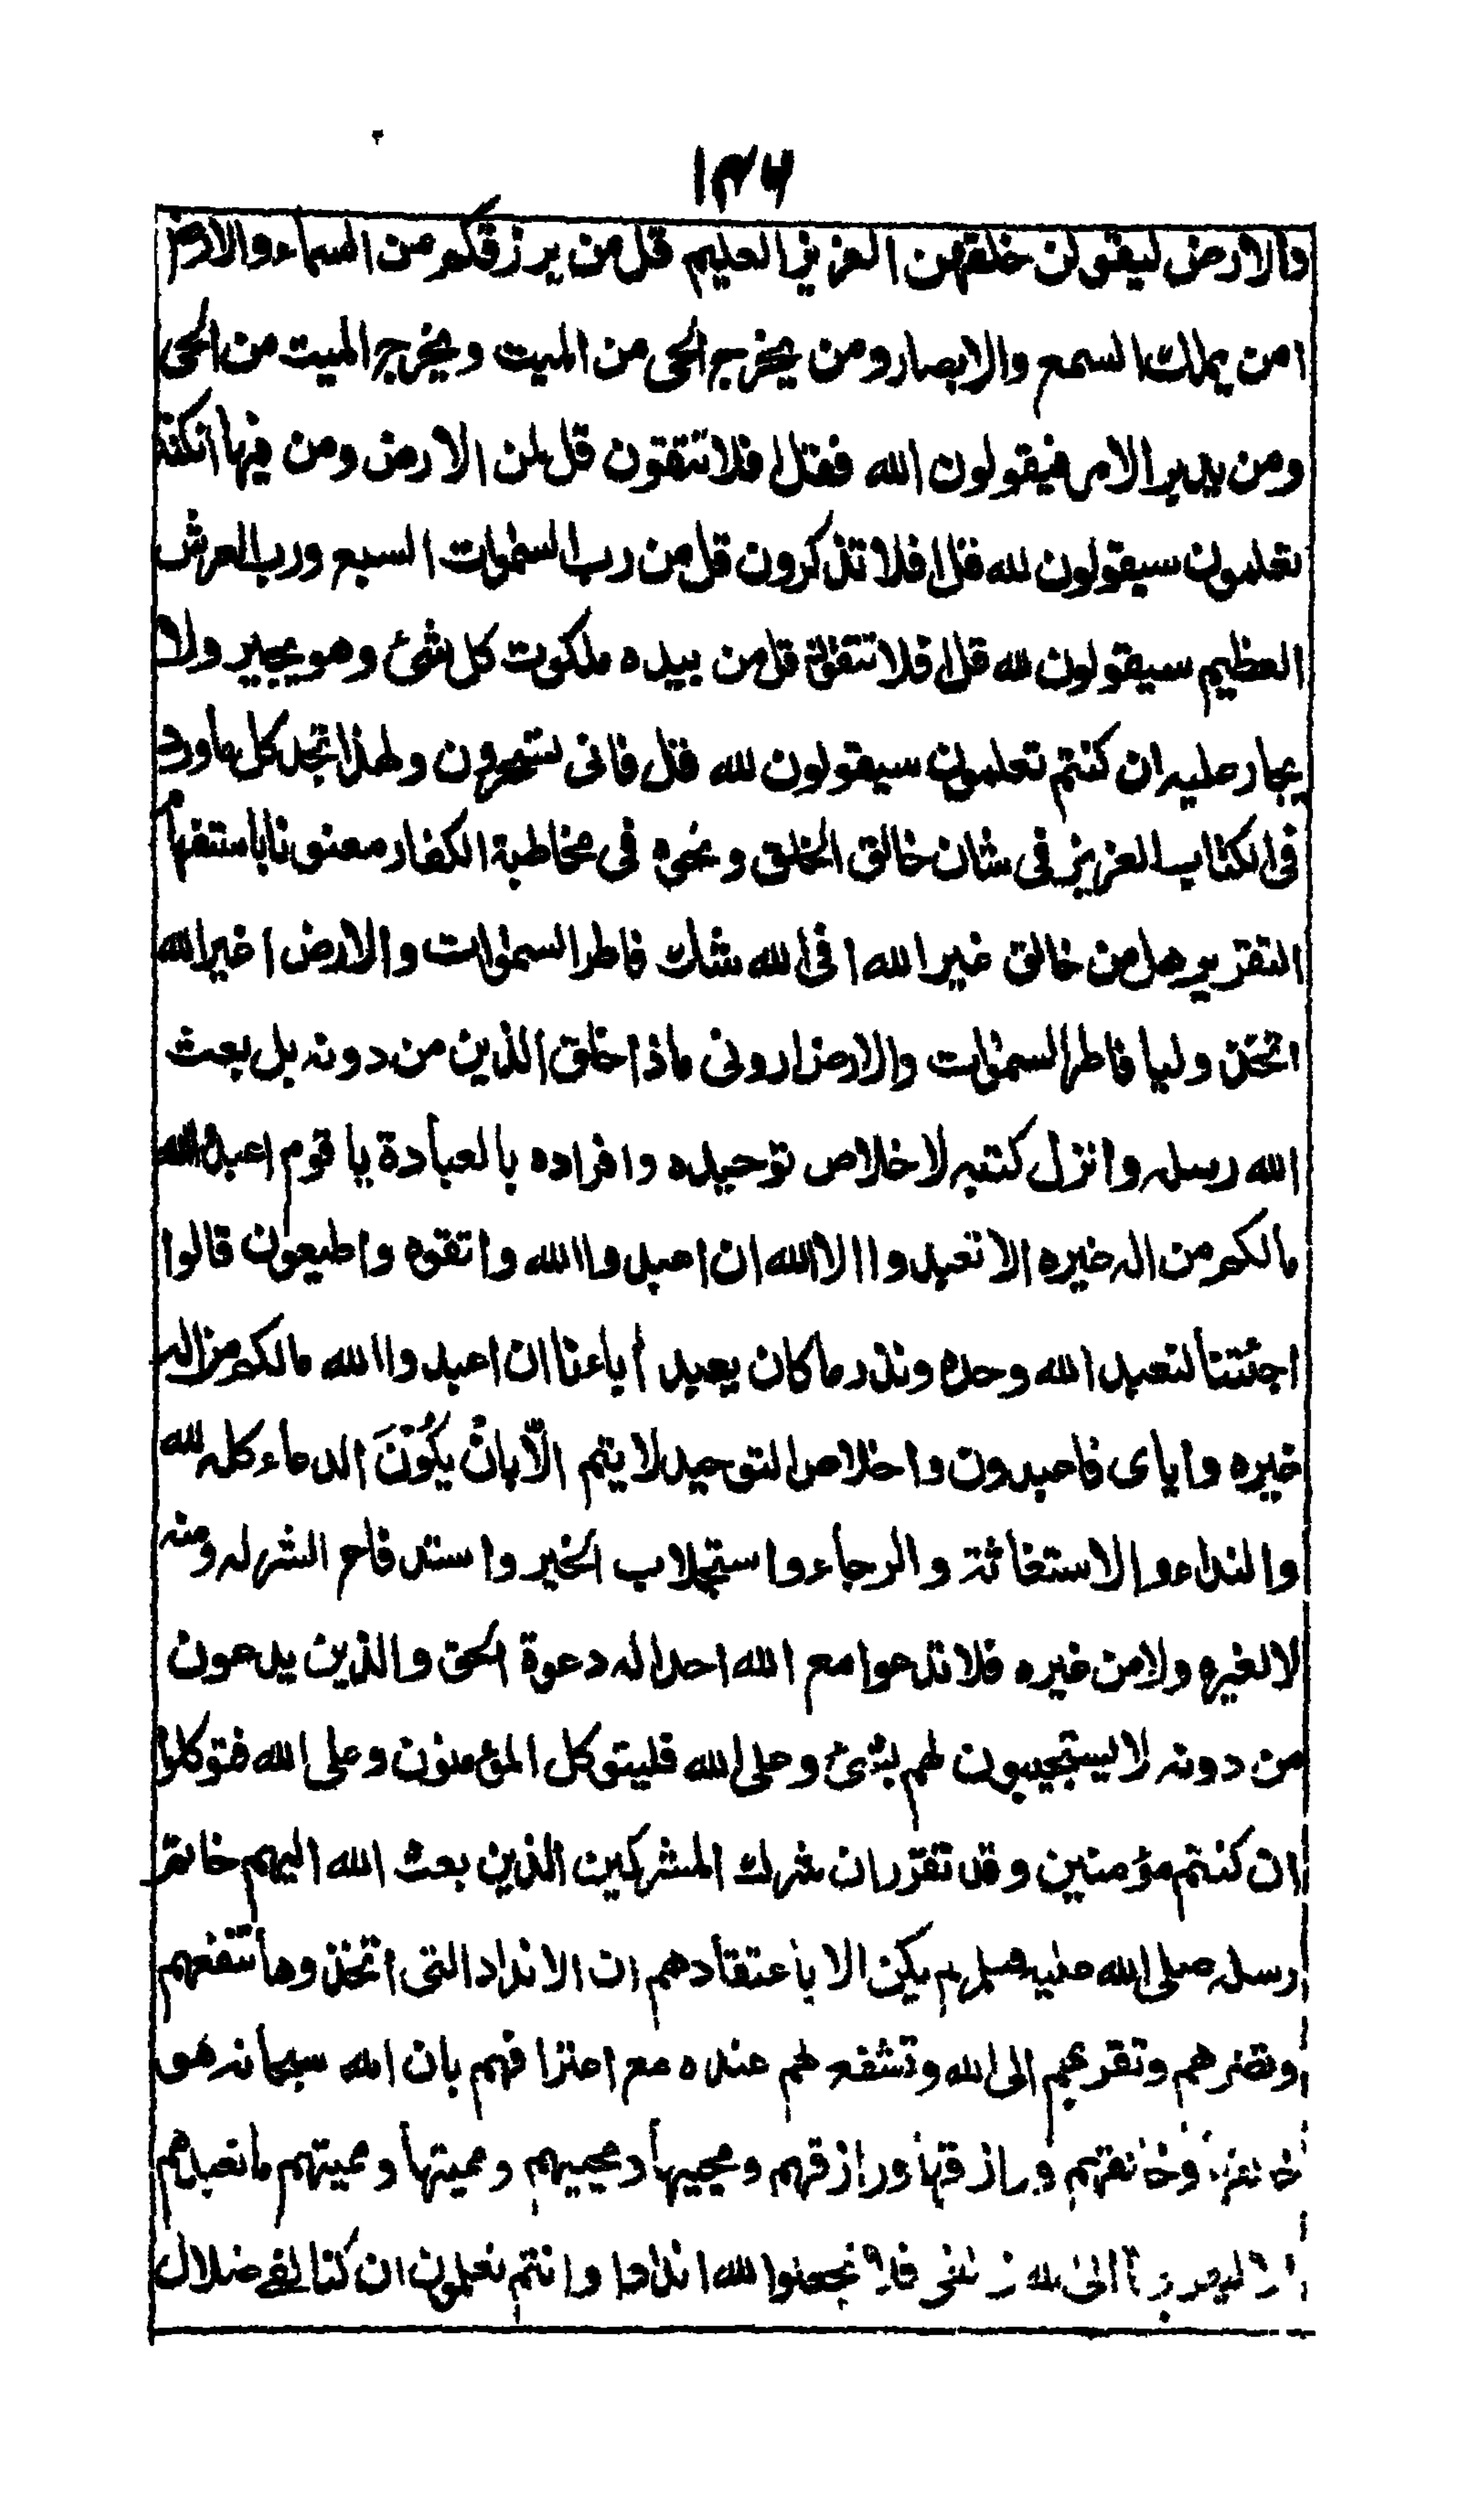 ١٣٦
والارض ليقولن خلقهن العزيز العليم قل من يرزقكم من السماء والارض
امن يملك السمع والابصار ومن يخرج الحى من الميت ويخرج الميت من الحى
ومن يدبر الامر فيقولون الله فقل افلا تتقون قل لمن الارض ومن فيها ان كنتم
تعلمون سيقولون لله قل افلا تذكرون قل من رب السموات السبع ورب العرش
العظيم سيقولون لله قل افلا تتقون قل من بيده ملكوت كل شئ وهو يجير ولا
يجار عليه ان كنتم تعلمون سيقولون لله قل فانى تسحرون ولهذا تجد كل ما ورد
فى الكتاب العزيز فى شان خالق الخلق ونحوه فى مخاطبة الكفار معنونا باستفهام
التقرير هل من خالق غير الله افى الله شك فاطر السموات والارض اغير الله
اتخذ وليا فاطر السموات والارض ارونى ماذا خلق الذين من دونه بل بعث
الله رسله وانزل كتبه لاخلاص توحيده وافراده بالعبادة يا قوم اعبدوا الله
مالكم من اله غيره الا تعبدوا الا الله ان اعبدوا الله واتقوه واطيعون قالوا
اجئتنا لنعبد الله وحده ونذر ما كان يعبد أباءنا ان اعبدوا الله مالكم من اله
غيره واياى فاعبدون واخلاص التوحيد لا يتم الّا بانْ يكُوْنَ الدعاء كله لله
والنداء والاستغاثة والرجاء واستجلاب الخير واستدفاع الشر له ومنه
لا لغيره ولا من غيره فلا تدعوا مع الله احدا له دعوة الحق والذين يدعون
من دونه لا يستجيبون لهم بشئ وعلى الله فليتوكل المؤمنون وعلى الله فتوكلوا
ان كنتم مؤمنين وقد تقرر ان شرك المشركين الذين بعث الله اليهم خاتم
رسله صلى الله عليه وسلم لم يكن الا باعتقادهم ان الانداد التى اتخذوها تنفعهم
وتضرهم وتقربهم الى الله وتشفع لهم عنده مع اعترافهم بان الله سبحانه هو
خالقها وخالقهم ورازقها ورازقهم ومحييها ومحييهم ومميتها ومميتهم ما نعبدهم
الا ليقربونا الى الله زلفى فلا تجعلوا لله اندادا وانتم تعلمون ان كنا لفى ضلال